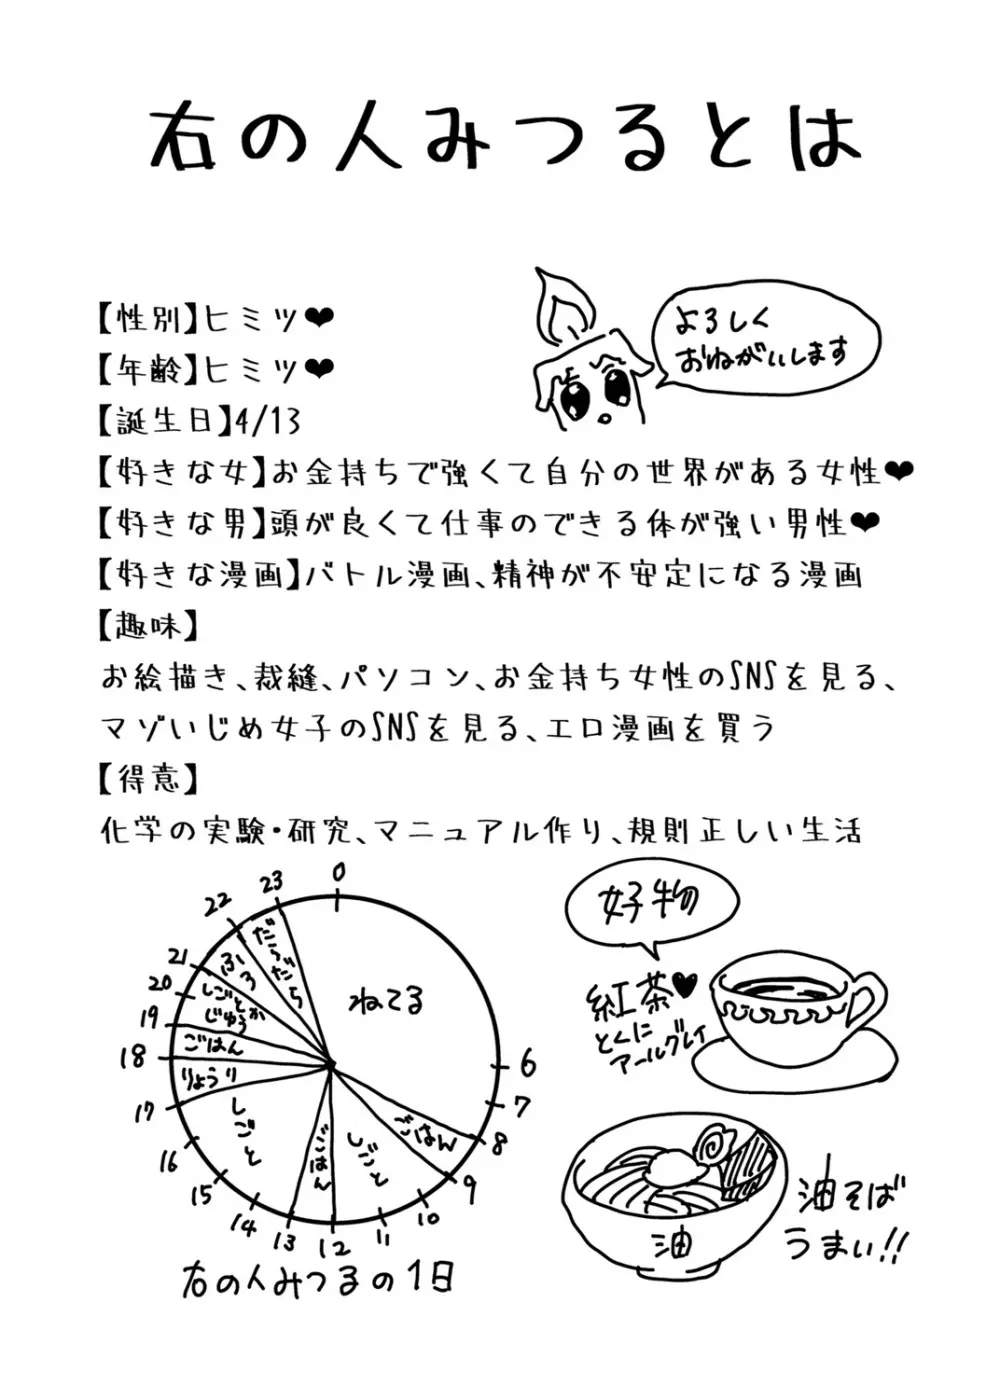 右の人みつるとは
よろしく
おねがいします
【性別】ヒミツ❤
【年齢】ヒミツ❤
【誕生日】4/13
【好きな女】お金持ちで強くて自分の世界がある女性❤
【好きな男】頭が良くて仕事のできる体が強い男性❤
【好きな漫画】バトル漫画、精神が不安定になる漫画
【趣味】
お絵描き、裁縫、パソコン、お金持ち女性のSNSを見る、
マゾいじめ女子のSNSを見る、エロ漫画を買う
【得意】
化学の実験・研究、マニュアル作り、規則正しい生活
0
6
7
8
9
10
11
12
13
14
15
16
17
18
19
20
21
22
23
ねてる
ごはん
しごと
ごはん
しごと
りょうり
ごはん
しごとか
じゅう
ふろ
だらだら
右の人みつるの1日
好物
紅茶♥
とくに
アールグレイ
油
油そば
うまい!!